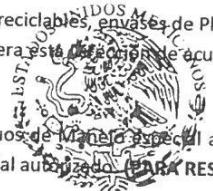 reciclables, envases de P
era está
de acu
UNIDOS ME
uos de Manejo especial a
al autorizado (PARA RES